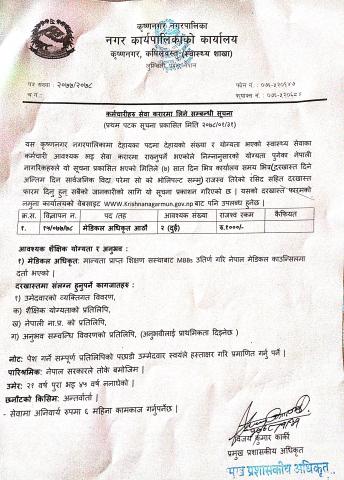 कृष्णनगर नगरपालिका
नगर कार्यपालिकाको कार्यालय
कृष्णनगर, कपिलवस्तु (स्वास्थ्य शाखा)
पत्र संख्या : २०७७/२०७८
च.नं.:
फोन नं. : ०७६-५२०१४७
कर्मचारीहरु सेवा करारमा लिने सम्बन्धी सूचना
(प्रथम पटक सूचना प्रकाशित मिति २०७८/०१/२१)
यस कृष्णनगर नगरपालिकामा देहायका पदमा देहायको संख्या र योग्यता भएको स्वास्थ्य सेवाका
कर्मचारी आवश्यक भइ सेवा करारमा राख्नुपर्ने भएकोले निम्नानुसारको योग्यता पुगेका नेपाली
नागरिकहरुले यो सूचना प्रकाशन भएको मितिले (७) सात दिन भित्र कार्यालय समय भित्र(दरखास्त दिने
अन्तिम दिन सार्वजनिक विदा परेमा सो को भोलिपल्ट सम्म) राजश्व तिरेको रसिद सहित दरखास्त
फारम दिनु हुन सबैको जानकारीको लागि यो सूचना प्रकाशन गरिएको छ । यसको दरखास्त फारमको
नमूना कार्यालयको वेबसाइट WWW.Krishnanagarmun.gov.np बाट पनि उपलब्ध हुनेछ ।
क्र.स. विज्ञापन नं. पद /तह आवश्यक संख्या राजश्व रकम कैफियत
१. १५/०७७/७८ मेडिकल अधिकृत आठौं २ (दुई) रु.१०००/-
आवश्यक शैक्षिक योग्यता र अनुभव :
१) मेडिकल अधिकृत: मान्यता प्राप्त शिक्षण संस्थाबाट MBBs उतिर्ण गरि नेपाल मेडिकल काउन्सिलमा
दर्ता भएको ।
दरखास्तमा संलग्न हुनुपर्ने कागजातहरु :
१) उमेदवारको व्यक्तिगत विवरण,
क) शैक्षिक योग्यताको प्रतिलिपि,
ख) नेपाली ना.प्र. को प्रतिलिपि,
ग) अनुभव सम्बन्धि विवरणको प्रतिलिपि, (अनुभवीलाई प्राथमिकता दिइनेछ )
नोट: पेश गर्ने सम्पूर्ण प्रतिलिपिको पछाडी उम्मेदवार स्वयंले हस्ताक्षर गरि प्रमाणित गर्नु पर्ने ।
पारिश्रमिक: नेपाल सरकारले तोके बमोजिम ।
उमेर: २१ वर्ष पुरा भइ ४५ वर्ष ननाघेको ।
छनौटको किसिम: अन्तर्वार्ता ।
- सेवामा अनिवार्य रुपमा ६ महिना कामकाज गर्नुपर्नेछ ।
विजय कुमार कार्की
प्रमुख प्रशासकीय अधिकृत
प्रशासकीय अधिकृत